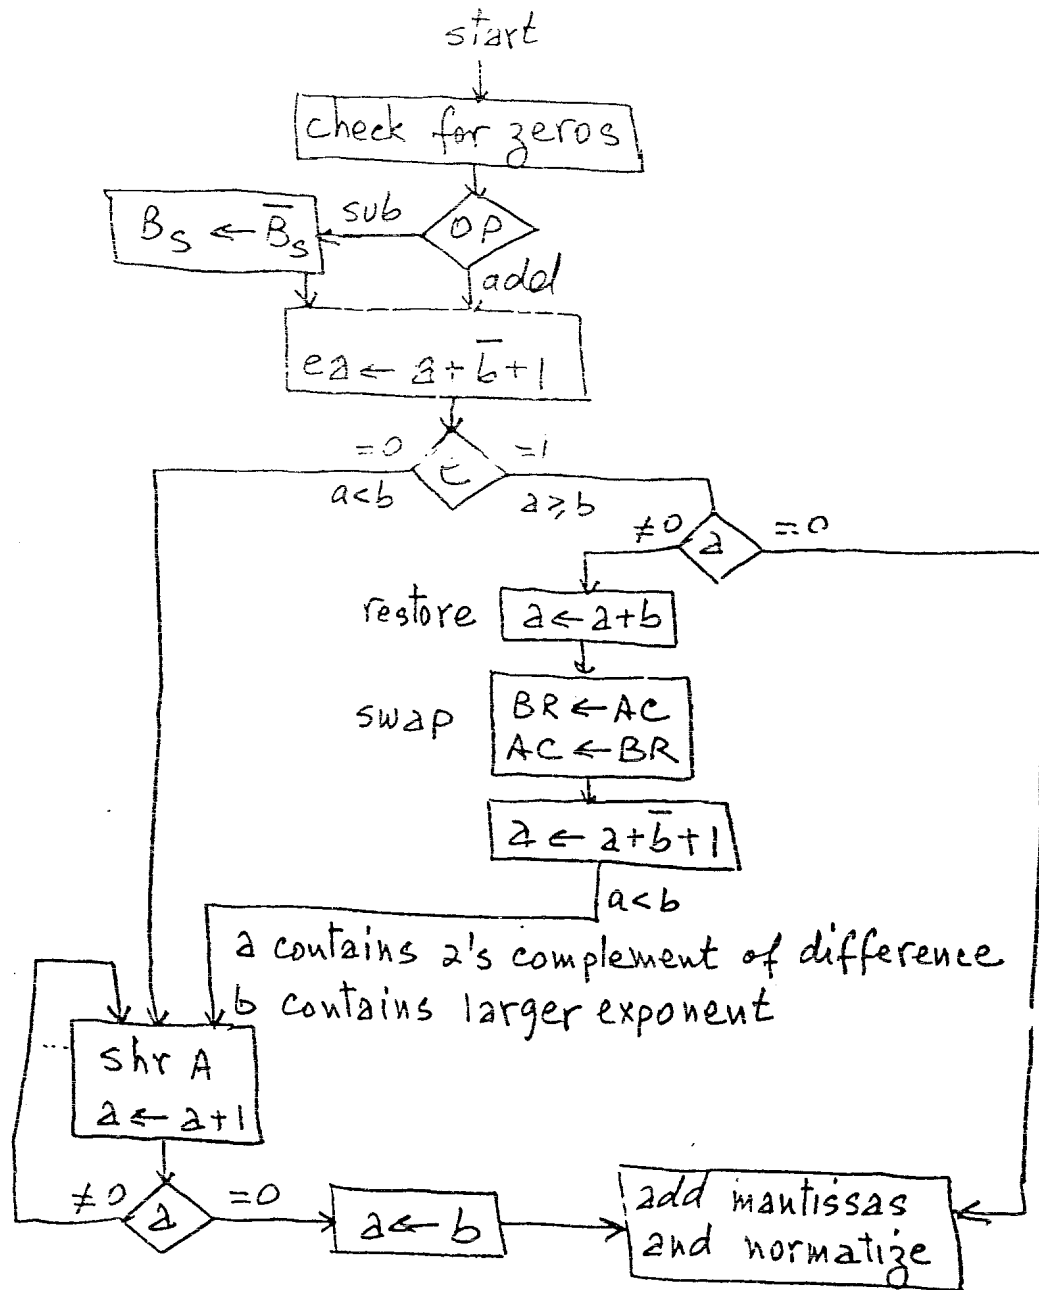 start
check for zeros
B_S ← B̅_S
sub
OP
add
ea ← a + b̅ + 1
=0
a<b
e
=1
a≥b
≠0
a
=0
restore
a ← a+b
swap
BR ← AC
AC ← BR
a ← a+b̅+1
a<b
a contains 2's complement of difference
b contains larger exponent
shr A
a ← a+1
≠0
a
=0
a ← b
add mantissas
and normatize